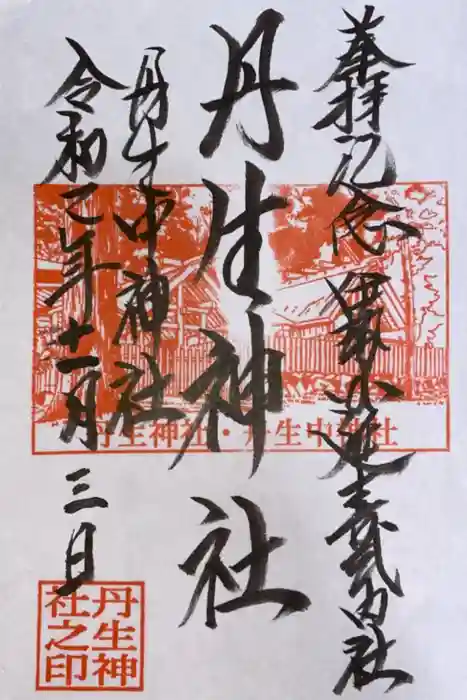 参拝記念 延喜式内社
丹生神社
丹生中神社
令和元年十一月三日
丹生神社・丹生中神社
丹生神
社之印